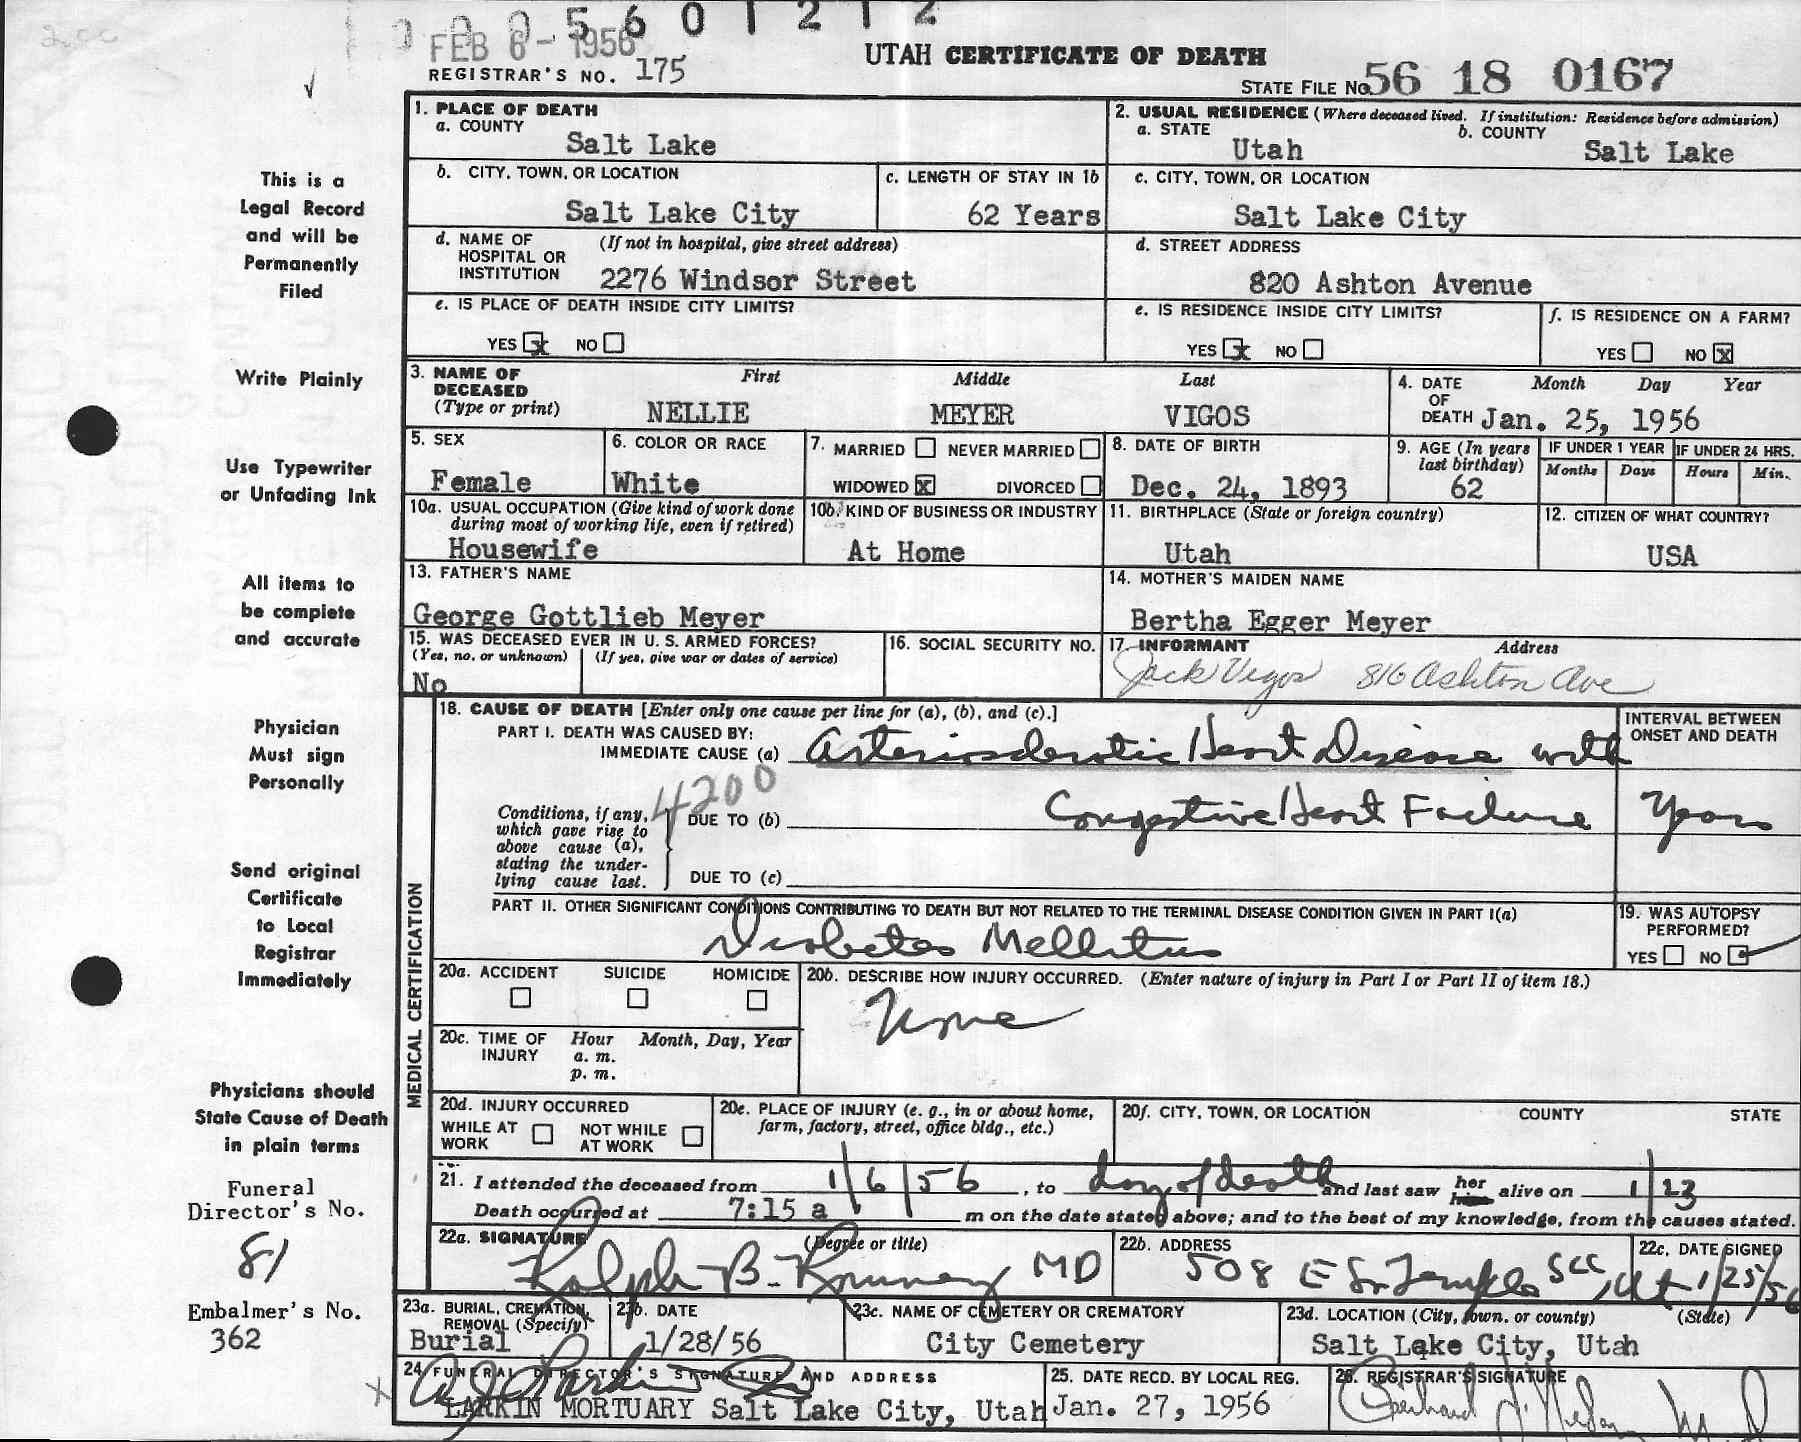 2.cc
0 0 0 5 6 0 1 2 1 2
FEB 6 - 1956
UTAH CERTIFICATE OF DEATH
REGISTRAR'S NO. 175
STATE FILE No. 56 18 0167
This is a
Legal Record
and will be
Permanently
Filed
Write Plainly
Use Typewriter
or Unfading Ink
All items to
be complete
and accurate
Physician
Must sign
Personally
Send original
Certificate
to Local
Registrar
Immediately
Physicians should
State Cause of Death
in plain terms
Funeral
Director's No.
81
Embalmer's No.
362
1. PLACE OF DEATH
a. COUNTY
Salt Lake
2. USUAL RESIDENCE (Where deceased lived. If institution: Residence before admission)
a. STATE b. COUNTY
Utah Salt Lake
b. CITY, TOWN, OR LOCATION
Salt Lake City
c. LENGTH OF STAY IN 1b
62 Years
c. CITY, TOWN, OR LOCATION
Salt Lake City
d. NAME OF (If not in hospital, give street address)
HOSPITAL OR
INSTITUTION 2276 Windsor Street
d. STREET ADDRESS
820 Ashton Avenue
e. IS PLACE OF DEATH INSIDE CITY LIMITS?
YES x NO
e. IS RESIDENCE INSIDE CITY LIMITS?
YES x NO
f. IS RESIDENCE ON A FARM?
YES NO x
3. NAME OF First Middle Last
DECEASED
(Type or print) NELLIE MEYER VIGOS
4. DATE Month Day Year
OF
DEATH Jan. 25, 1956
5. SEX
Female
6. COLOR OR RACE
White
7. MARRIED NEVER MARRIED
WIDOWED x DIVORCED
8. DATE OF BIRTH
Dec. 24, 1893
9. AGE (In years
last birthday)
62
IF UNDER 1 YEAR IF UNDER 24 HRS.
Months Days Hours Min.
10a. USUAL OCCUPATION (Give kind of work done
during most of working life, even if retired)
Housewife
10b. KIND OF BUSINESS OR INDUSTRY
At Home
11. BIRTHPLACE (State or foreign country)
Utah
12. CITIZEN OF WHAT COUNTRY?
USA
13. FATHER'S NAME
George Gottlieb Meyer
14. MOTHER'S MAIDEN NAME
Bertha Egger Meyer
15. WAS DECEASED EVER IN U. S. ARMED FORCES?
(Yes, no. or unknown) (If yes, give war or dates of service)
No
16. SOCIAL SECURITY NO.
17. INFORMANT Address
Jack Vigos 816 Ashton Ave
MEDICAL CERTIFICATION
18. CAUSE OF DEATH [Enter only one cause per line for (a), (b), and (c).]
PART I. DEATH WAS CAUSED BY:
IMMEDIATE CAUSE (a) Arteriosclerotic Heart Disease with
INTERVAL BETWEEN
ONSET AND DEATH
4200
Conditions, if any,
which gave rise to
above cause (a),
stating the under-
lying cause last.
DUE TO (b) Congestive Heart Failure Years
DUE TO (c)
PART II. OTHER SIGNIFICANT CONDITIONS CONTRIBUTING TO DEATH BUT NOT RELATED TO THE TERMINAL DISEASE CONDITION GIVEN IN PART I(a)
Diabetes Mellitus
19. WAS AUTOPSY
PERFORMED?
YES NO
20a. ACCIDENT SUICIDE HOMICIDE
20b. DESCRIBE HOW INJURY OCCURRED. (Enter nature of injury in Part I or Part II of item 18.)
None
20c. TIME OF Hour Month, Day, Year
INJURY a. m.
p. m.
20d. INJURY OCCURRED
WHILE AT NOT WHILE
WORK AT WORK
20e. PLACE OF INJURY (e. g., in or about home,
farm, factory, street, office bldg., etc.)
20f. CITY, TOWN, OR LOCATION COUNTY STATE
21. I attended the deceased from 1/6/56, to day of death and last saw her him alive on 1/23
Death occurred at 7:15 a m on the date stated above; and to the best of my knowledge, from the causes stated.
22a. SIGNATURE (Degree or title)
Ralph B. MD
22b. ADDRESS
508 E So Temple SLC, Ut
22c. DATE SIGNED
1/25/56
23a. BURIAL, CREMATION,
REMOVAL (Specify)
Burial
23b. DATE
1/28/56
23c. NAME OF CEMETERY OR CREMATORY
City Cemetery
23d. LOCATION (City, town. or county) (State)
Salt Lake City, Utah
24 FUNERAL DIRECTOR'S SIGNATURE AND ADDRESS
LARKIN MORTUARY Salt Lake City, Utah
25. DATE RECD. BY LOCAL REG.
Jan. 27, 1956
26. REGISTRAR'S SIGNATURE